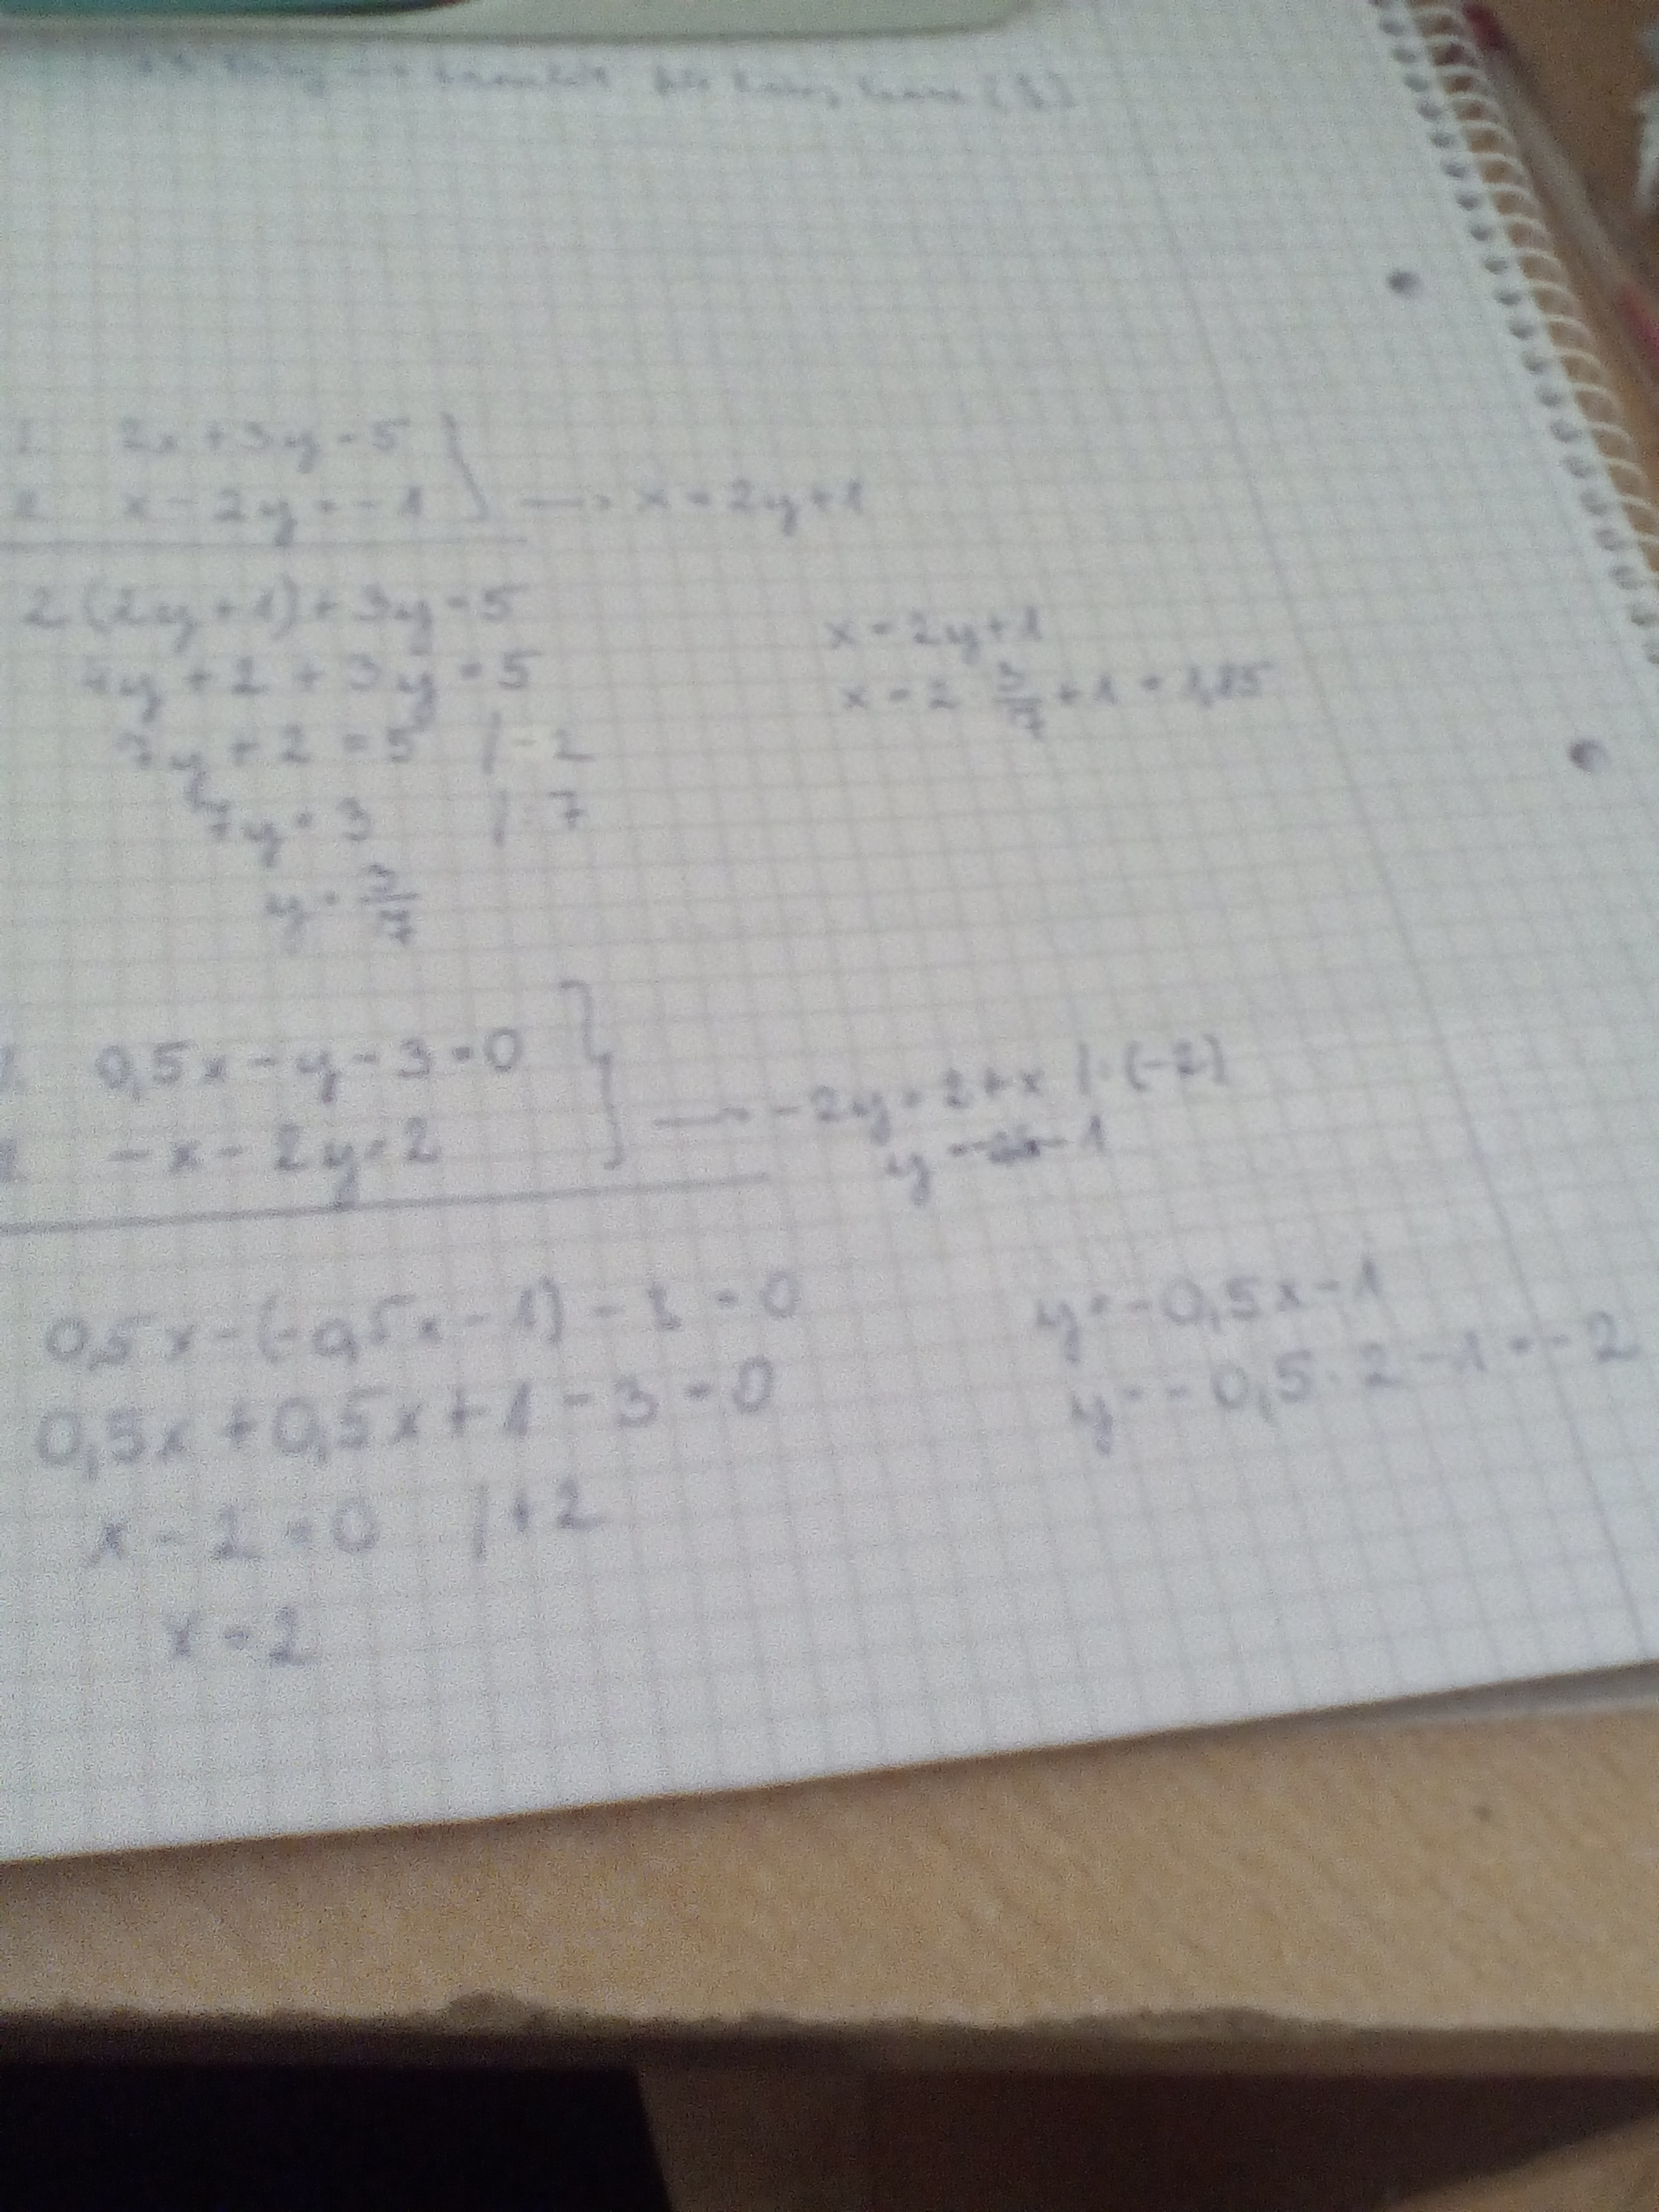 1. 2x + 3y = 5
2. x - 2y = -1 → x = 2y + 1
2(2y + 1) + 3y = 5
4y + 2 + 3y = 5
7y + 2 = 5 | - 2
7y = 3 | : 7
y = 3/7
x = 2y + 1
x = 2 · 3/7 + 1 = 1,85
1. 0,5x - y - 3 = 0
2. -x - 2y = 2 → -2y = 2 + x | : (-2)
y = - 1
0,5x - (-0,5x - 1) - 3 = 0
0,5x + 0,5x + 1 - 3 = 0
x - 2 = 0 | + 2
x = 2
y = -0,5x - 1
y = -0,5 · 2 - 1 = -2